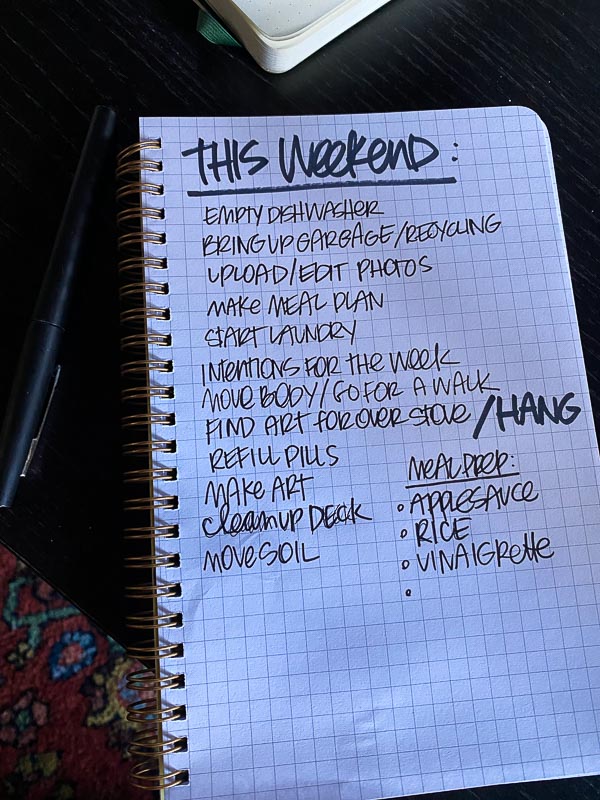 THIS WEEKEND:
EMPTY DISHWASHER
BRING UP GARBAGE/RECYCLING
UPLOAD/EDIT PHOTOS
MAKE MEAL PLAN
START LAUNDRY
INTENTIONS FOR THE WEEK
MOVE BODY/GO FOR A WALK
FIND ART FOR OVER STOVE /HANG
REFILL PILLS
MAKE ART
CLEAN UP DECK
MOVE SOIL
MEAL PREP:
• APPLESAUCE
• RICE
• VINAIGRETTE
•